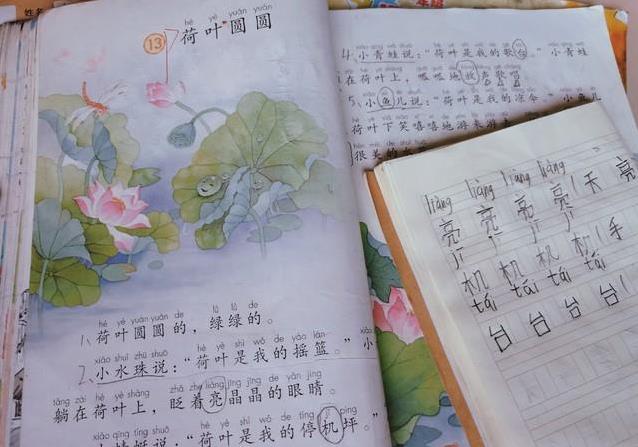 姓名
hé yè yuán yuán
13 荷叶圆圆
hé yè yuán yuán de lǜ lǜ de
1、荷叶圆圆的，绿绿的。
xiǎo shuǐ zhū shuō hé yè shì wǒ de yáo lán
2、小水珠说：“荷叶是我的摇篮。”小
tǎng zài hé yè shàng zhǎ zhe liàng jīng jīng de yǎn jīng
躺在荷叶上，眨着亮晶晶的眼睛。
xiǎo qīng tíng shuō hé yè shì wǒ de tíng jī píng
小蜻蜓说：“荷叶是我的停机坪。”
4、小青蛙说：“荷叶是我的歌台。”小青蛙
在荷叶上，呱呱地放声歌唱
5、小鱼儿说：“荷叶是我的凉伞。”小鱼儿
荷叶下笑嘻嘻地游来游去
很美的
liàng liàng liàng liàng
亮 亮 亮 亮 天亮
jī jī jī jī
机 机 机 机 手
tái tái tái tái
台 台 台 台